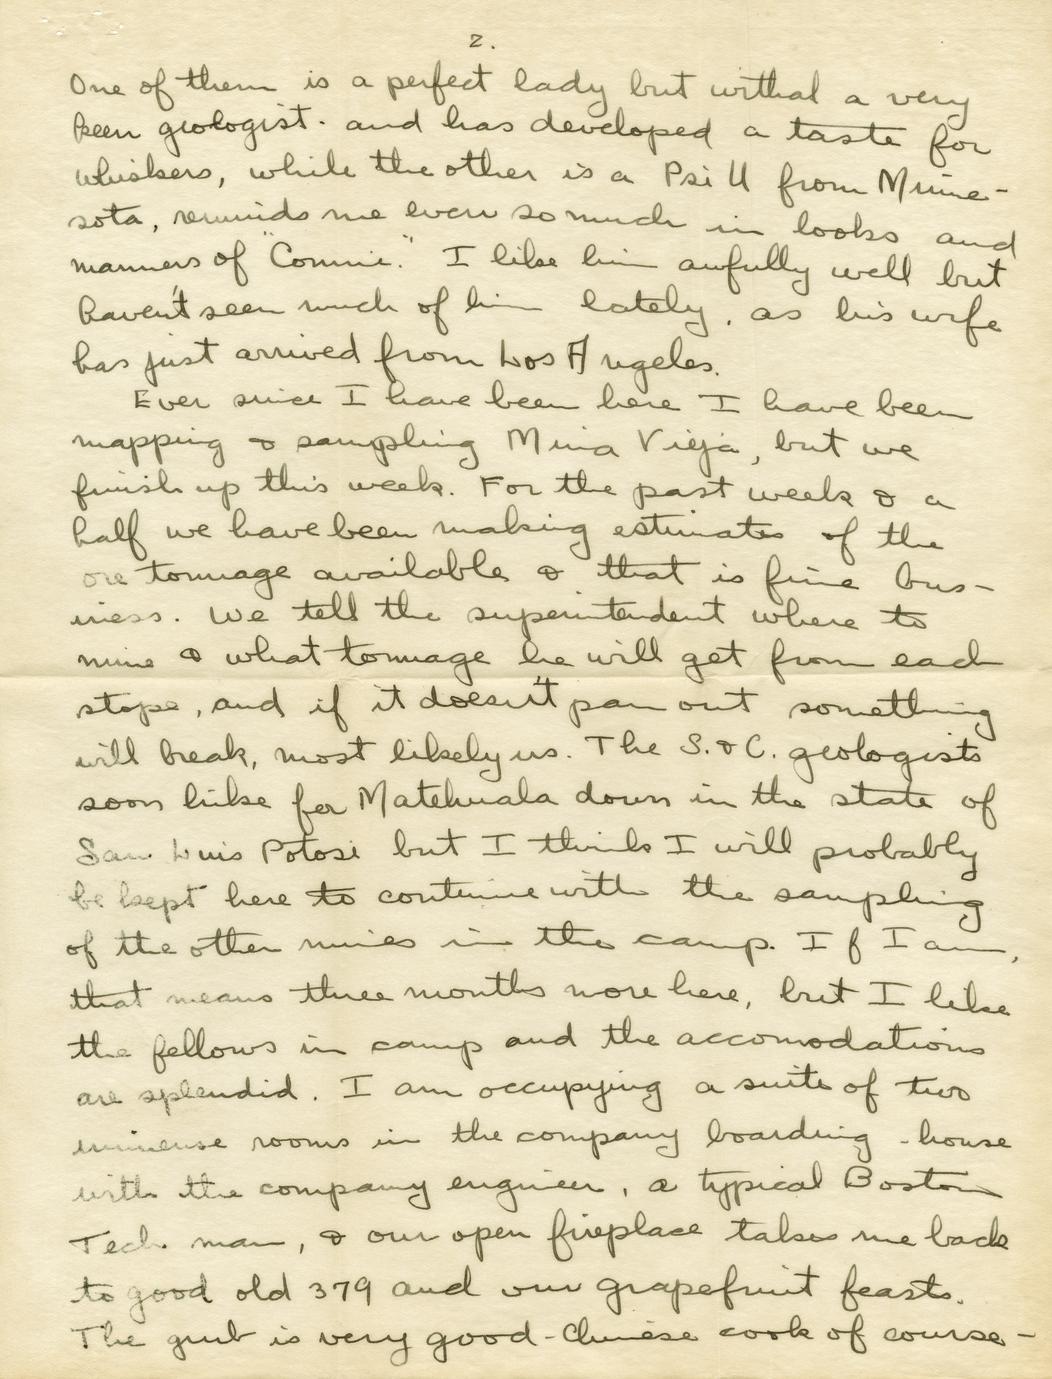 2.
One of them is a perfect lady but withal a very
keen geologist. and has developed a taste for
whiskers, while the other is a Psi U from Minne-
sota, reminds me ever so much in looks and
manners of "Connie." I like him awfully well but
haven't seen much of him lately, as his wife
has just arrived from Los Angeles.
Ever since I have been here I have been
mapping & sampling Mina Vieja, but we
finish up this week. For the past week & a
half we have been making estimates of the
ore tonnage available & that is fine bus-
iness. We tell the superintendent where to
mine & what tonnage he will get from each
stope, and if it doesn't pan out something
will break, most likely us. The S. & C. geologists
soon hike for Matehuala down in the state of
San Luis Potosi but I think I will probably
be kept here to continue with the sampling
of the other mines in the camp. If I am,
that means three months more here, but I like
the fellows in camp and the accomodations
are splendid. I am occupying a suite of two
immense rooms in the company boarding-house
with the company engineer, a typical Boston
Tech man, & our open fireplace takes me back
to good old 379 and our grapefruit feasts.
The grub is very good - Chinese cook of course -